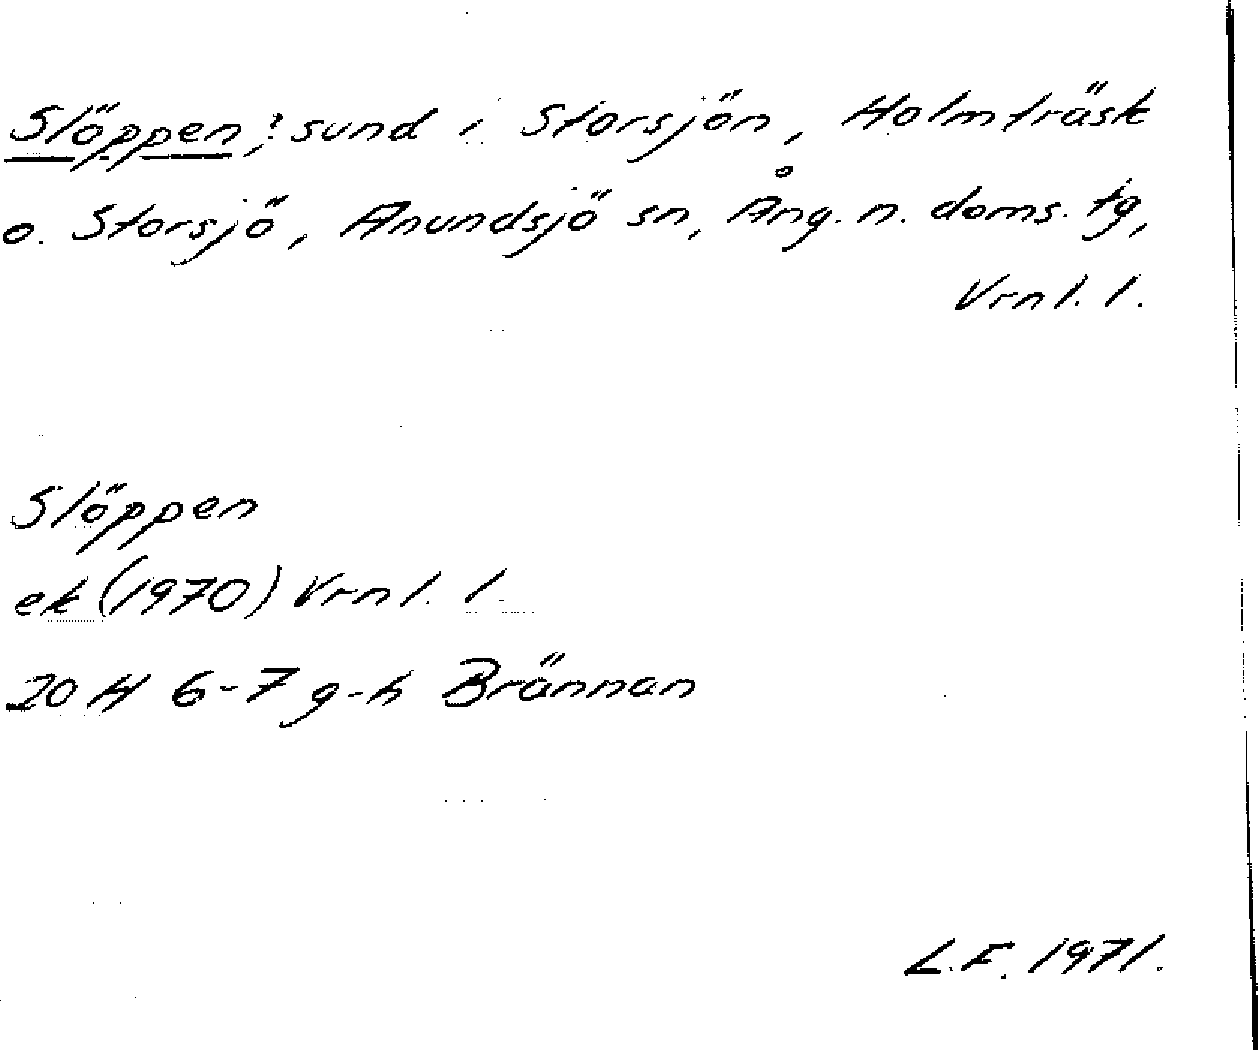 Slöppen,! sund i Storsjön, Holmträsk
o. Storsjö, Anundsjö sn, Ång. n. doms. tg,
Vrnl. l.
Slöppen
ek (1970) Vrnl. l.
20 H 6-7 g-h Brännan
L.F. 1971.